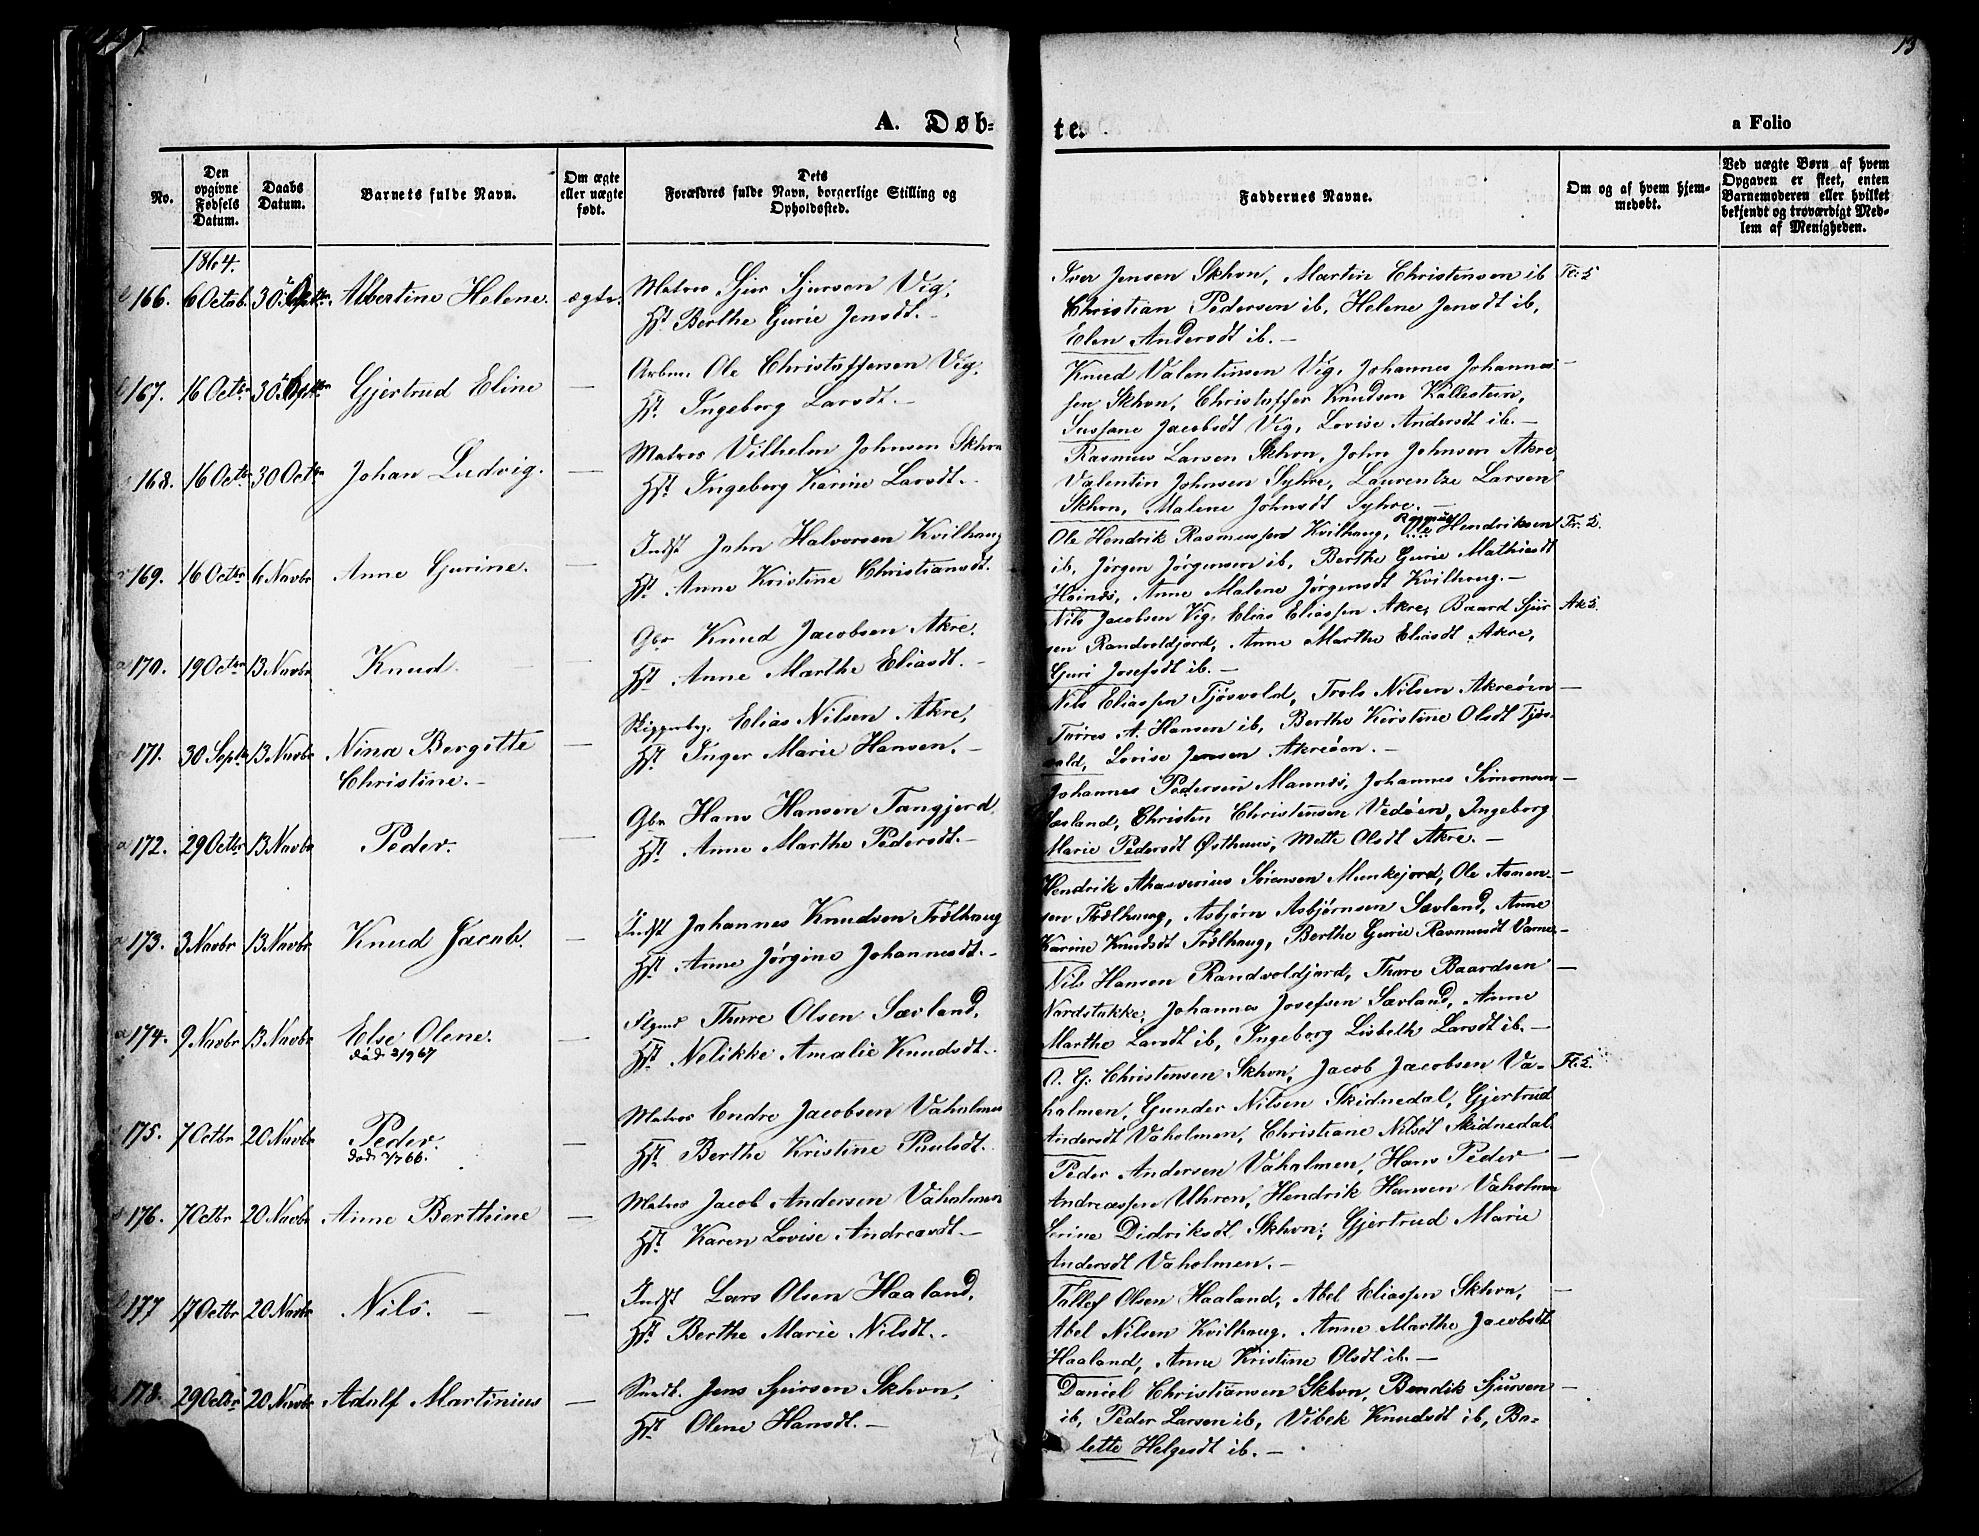 13
A. Døb-
te.
a Folio
No.
Den opgivne Fødsels Datum.
Daabs Datum.
Barnets fulde Navn.
Om ægte eller uægte født.
Dets Forældres fulde Navn, borgerlige Stilling og Opholdssted.
Faddernes Navne.
Om og af hvem hjem-
medøbt.
Ved uægte Børn af hvem
Opgaven er skeet, enten
Barnemoderen eller hvilket
bekjendt og troværdigt Med-
lem af Menigheden.
1864.
166. 6 Octob. 30 Albertine Helene. ægte. Matros Sjur Sjursen Vig,
Hst. Berthe Gurie Jensdt.
Iver Jensen Skhvn, Martin Christensen ib
Christian Pedersen ib, Helene Jensdt ib,
Elen Andersdt ib. —
167. 16 Octbr 30 Gjertrud Eline — Arbm. Ole Christoffersen Vig,
Hst. Ingeborg Larsdt. —
Knud Valentinsen Vig, Johannes Johannes-
sen Skhvn, Christoffer Knudsen Kallestein,
Susane Jacobsdt Vig, Lovise Andersdt ib. —
168. 16 Octbr 30 Octbr Johan Ludvig. — Matros Vilhelm Johnsen Skhvn
Hst. Ingeborg Karine Larsdt. —
Rasmus Larsen Skhvn, John Johnsen Akre,
Valentin Johnsen Syhre, Laurentze Larsen
Skhvn, Malene Johnsdt Syhre. —
169. 16 Octbr 6 Novbr Anne Gurine. — Indst John Halvorsen Kvilhaug
Hst. Anne Kristine Christiansdt.
Ole Hendrik Rasmussen Kvilhaug, Rasmus Hendriksen
ib, Jørgen Jørgensen ib, Berthe Gurie Mathiesdt
Hoinds, Anne Malene Jørgensdt Kvilhaug. —
170. 19 Octbr 13 Novbr Knud. — Gbr Knud Jacobsen Akre,
Hst. Anne Marthe Eliasdt. —
Nils Jacobsen Vig, Elias Eliassen Akre, Baard Sjur-
sen Randvoldjord, Anne Marthe Eliasdt Akre,
Guri Josefsdt ib. —
171. 30 Septbr 13 Novbr Nina Bergitte
Christine. — Elias Nilsen Akre,
Hst. Inger Marie Hansen. —
Nils Eliassen Tjøsvold, Trols Nilsen Akreøen —
Torres A. Hansen ib, Berthe Kirstine Olsdt Tjøs-
vold, Lovise Jensen Akreøen. —
172. 29 Octbr 13 Novbr Peder. — Gbr Hans Hansen Tangjerd
Hst. Anne Marthe Pedersdt. —
Johannes Pedersen Mannes, Johannes Simonsen —
Sæland, Christen Christensen Vedøen, Ingeborg
Marie Pedersdt Østhuus, Mette Olsdt Akre. —
173. 3 Novbr 13 Novbr Knud Jacob. — Indst Johannes Knudsen Trælhaug
Hst. Anne Jørgine Johannesdt. —
Hendrik Ahasverius Sørensen Munkejord, Ole Aanen- —
sen Trælhaug, Asbjørn Asbjørnsen Sævland, Anne
Karine Knudsdt Trælhaug, Berthe Gurie Rasmusdt Varne. —
174. 9 Novbr 13 Novbr Else Olene.
død 2/9 67
Thore Olsen Sævland,
Hst. Nelikke Amalie Knudsdt.
Nils Hansen Randvoldjord, Thore Baardsen —
Nordstokke, Johannes Josefsen Sævland, Anne
Marthe Larsdt ib, Ingeborg Lisbeth Larsdt ib. —
175. 7 Octbr 20 Novbr Peder.
død 7/7 66.
— Matros Endre Jacobsen Vaholmen
Hst. Berthe Kristine Paulsdt.
A. G. Christensen Skhvn, Jacob Jacobsen Va-
holmen, Gunder Nilsen Skidnedal, Gjertrud
Andersdt Vaholmen, Christiane Nilsdt Skidnedal.
176. 7 Octbr 20 Novbr Anne Berthine — Matros Jacob Andersen Vaholmen
Hst. Karen Lovise Andreasdt. —
Peder Andersen Vaholmen, Hans Peder —
Andreassen Uhren, Hendrik Hansen Vaholmen
Serine Didriksdt Skhvn, Gjertrud Marie
Andersdt Vaholmen. —
177 17 Octbr 20 Novbr Nils. — Indst Lars Olsen Haaland,
Hst. Berthe Marie Nilsdt.
Tallef Olsen Haaland, Abel Eliassen Skhvn, —
Abel Nilsen Kvilhaug, Anne Marthe Jacobsdt
Haaland, Anne Kristine Olsdt ib. —
178. 29 Octbr 20 Novbr Adolf Martinius — Jens Sjursen Skhvn,
Hst. Olene Hansdt. —
Daniel Christiansen Skhvn, Bendik Sjursen —
ib, Peder Larsen ib, Vibek Knudsdt ib, Bo-
lette Helgesdt ib. —